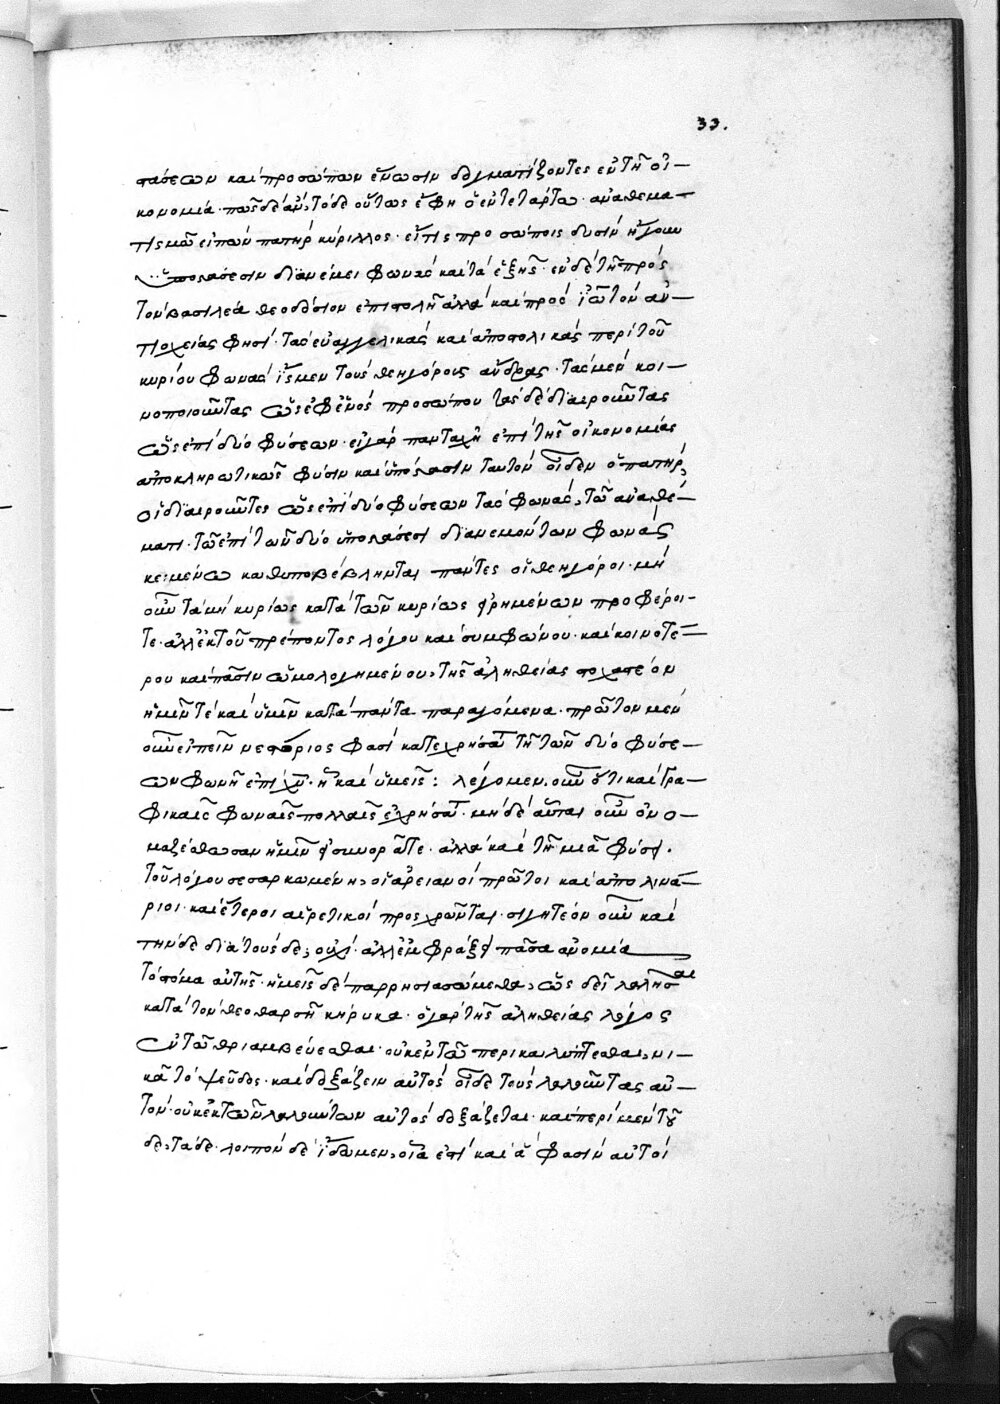 33.
στάσεων καὶ προσώπων ἕνωσιν δογματίζοντες ἐν τῆ οἰ-
κονομία· πῶς δὲ ἂν, τόδε οὕτως ἔφη ὁ ἐν τετάρτω ἀναθεμα-
τισμῶ εἰπὼν πατὴρ κύριλλος· εἴ τις προσώποις δυσὶν ἤγουν
ὑποστάσεσιν διανέμει φωνὰς καὶ τὰ ἑξῆς· ἐν δὲ τῆ πρὸς
τὸν βασιλέα θεοδόσιον ἐπιστολῆ ἀλλὰ καὶ πρὸς ἰῶ τὸν ἀν-
τιοχείας φησί· τὰς εὐαγγελικὰς καὶ ἀποστολικὰς περὶ τοῦ
κυρίου φωνὰς ἴσμεν τοὺς θεηγόρους ἄνδρας· τὰς μὲν κοι-
νοποιοῦντας ὡς ἐφ' ἑνὸς προσώπου τὰς δὲ διαιροῦντας
ὡς ἐπὶ δύο φύσεων· εἰ γὰρ πανταχῆ ἐπὶ τῆς οἰκονομίας
ἀποκληρωτικῶς φύσιν καὶ ὑπόστασιν ταυτὸν οἶδεν ὁ πατὴρ,
οἱ διαιροῦντες ὡς ἐπὶ δύο φύσεων τὰς φωνὰς, τῶ ἀναθέ-
ματι· τῶ ἐπὶ τῶν δύο ὑποστάσεσι διανεμόντων φωνὰς
κειμένω καθυποβέβληνται πάντες οἱ θεηγόροι· μὴ
οὖν τὰ μὴ κυρίως κατὰ τῶν κυρίως εἰρημένων προφέροι-
τε· ἀλλ' ἐκ τοῦ πρέποντος λόγου καὶ συμφώνου· καὶ κοινοτέ-
ρου καὶ πᾶσιν ὡμολογημένου, τῆς ἀληθείας στοχαστέον
ἡμῖν τὲ καὶ ὑμῖν κατὰ πάντα παραγόμενα· πρῶτον μὲν
οὖν εἰπεῖν νεστόριος φασὶ κατεχρήσατο τῆ τῶν δύο φύσε-
ων φωνῆ ἐπὶ χυ· ἢ καὶ ὑμεῖς: λέγομεν οὖν ὅτι καὶ γρα-
φικαῖς φωναῖς πολλαῖς ἐχρήσατο· μὴ δὲ αὗται οὖν ὀνο-
μαζέσθωσαν ἡμῖν εἰ συνορᾶτε· ἀλλὰ καὶ τῆ μιᾶ φύσει
τοῦ λόγου σεσαρκωμένη, οἱ ἀρειανοὶ πρῶτοι καὶ ἀπολινά-
ριοι· καὶ ἕτεροι αἱρετικοὶ προσχρῶνται· σιγητέον οὖν καὶ
τήνδε διὰ τούσδε; οὐχί· ἀλλ' ἐμφράξει πᾶσα ἀνομία
τὸ στόμα αὐτῆς· ἡμεῖς δὲ παρρησιασώμεθα, ὡς δεῖ λαλῆσαι
κατὰ τὸν θεοθαρσῆ κήρυκα· ὁ γὰρ τῆς ἀληθείας λόγος
ἐν τῶ θριαμβεύεσθαι· οὐκ ἐν τῶ περικαλύπτεσθαι, νι-
κᾶ τὸ ψεῦδος· καὶ δοξάζειν αὐτὸς οἶδε τοὺς λαλοῦντας αὐ-
τόν· οὐκ ἐκ τῶν λαλούντων αὐτὸς δοξάζεται· καὶ περὶ μὲν τοῦ
δε, τάδε· λοιπὸν δὲ ἴδωμεν, οἷα ἐστὶ καὶ ἅ φασὶν αὐτοὶ